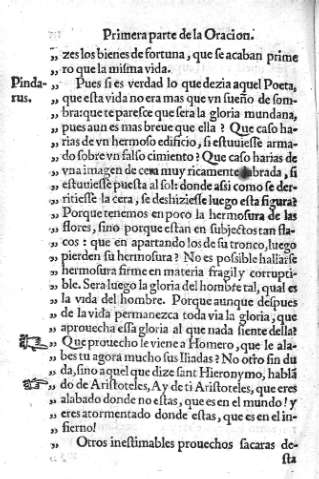 Primera parte de la Oracion.
„ zes los bienes de fortuna, que se acaban prime
„ ro que la misma vida.
Pinda- „ Pues si es verdad lo que dezia aquel Poeta,
rus. „ que esta vida no era mas que vn sueño de som-
„ bra: que te paresce que sera la gloria mundana,
„ pues aun es mas breue que ella? Que caso ha-
„ rias de vn hermoso edificio, si estuuiesse arma-
„ do sobre vn falso cimiento? Que caso harias de
„ vna imagen de cera muy ricamente labrada, si
„ estuuiesse puesta al sol: donde assi como se der-
„ ritiesse la cera, se deshiziesse luego esta figura?
„ Porque tenemos en poco la hermosura de las
„ flores, sino porque estan en subjectos tan fla-
„ cos: que en apartando los de su tronco, luego
„ pierden su hermosura? No es possible hallarse
„ hermosura firme en materia fragil y corrupti-
„ ble. Sera luego la gloria del hombre tal, qual es
„ la vida del hombre. Porque aunque despues
„ de la vida permanezca toda via la gloria, que
„ aprouecha essa gloria al que nada siente della?
„ Que prouecho le viene a Homero, que le ala-
„ bes tu agora mucho sus Iliadas? No otro sin du
„ da, sino aquel que dize sant Hieronymo, hablã
„ do de Aristoteles, Ay de ti Aristoteles, que eres
„ alabado donde no estas, que es en el mundo! y
„ eres atormentado donde estas, que es en el in-
„ fierno!
„ Otros inestimables prouechos sacaras de-
sta